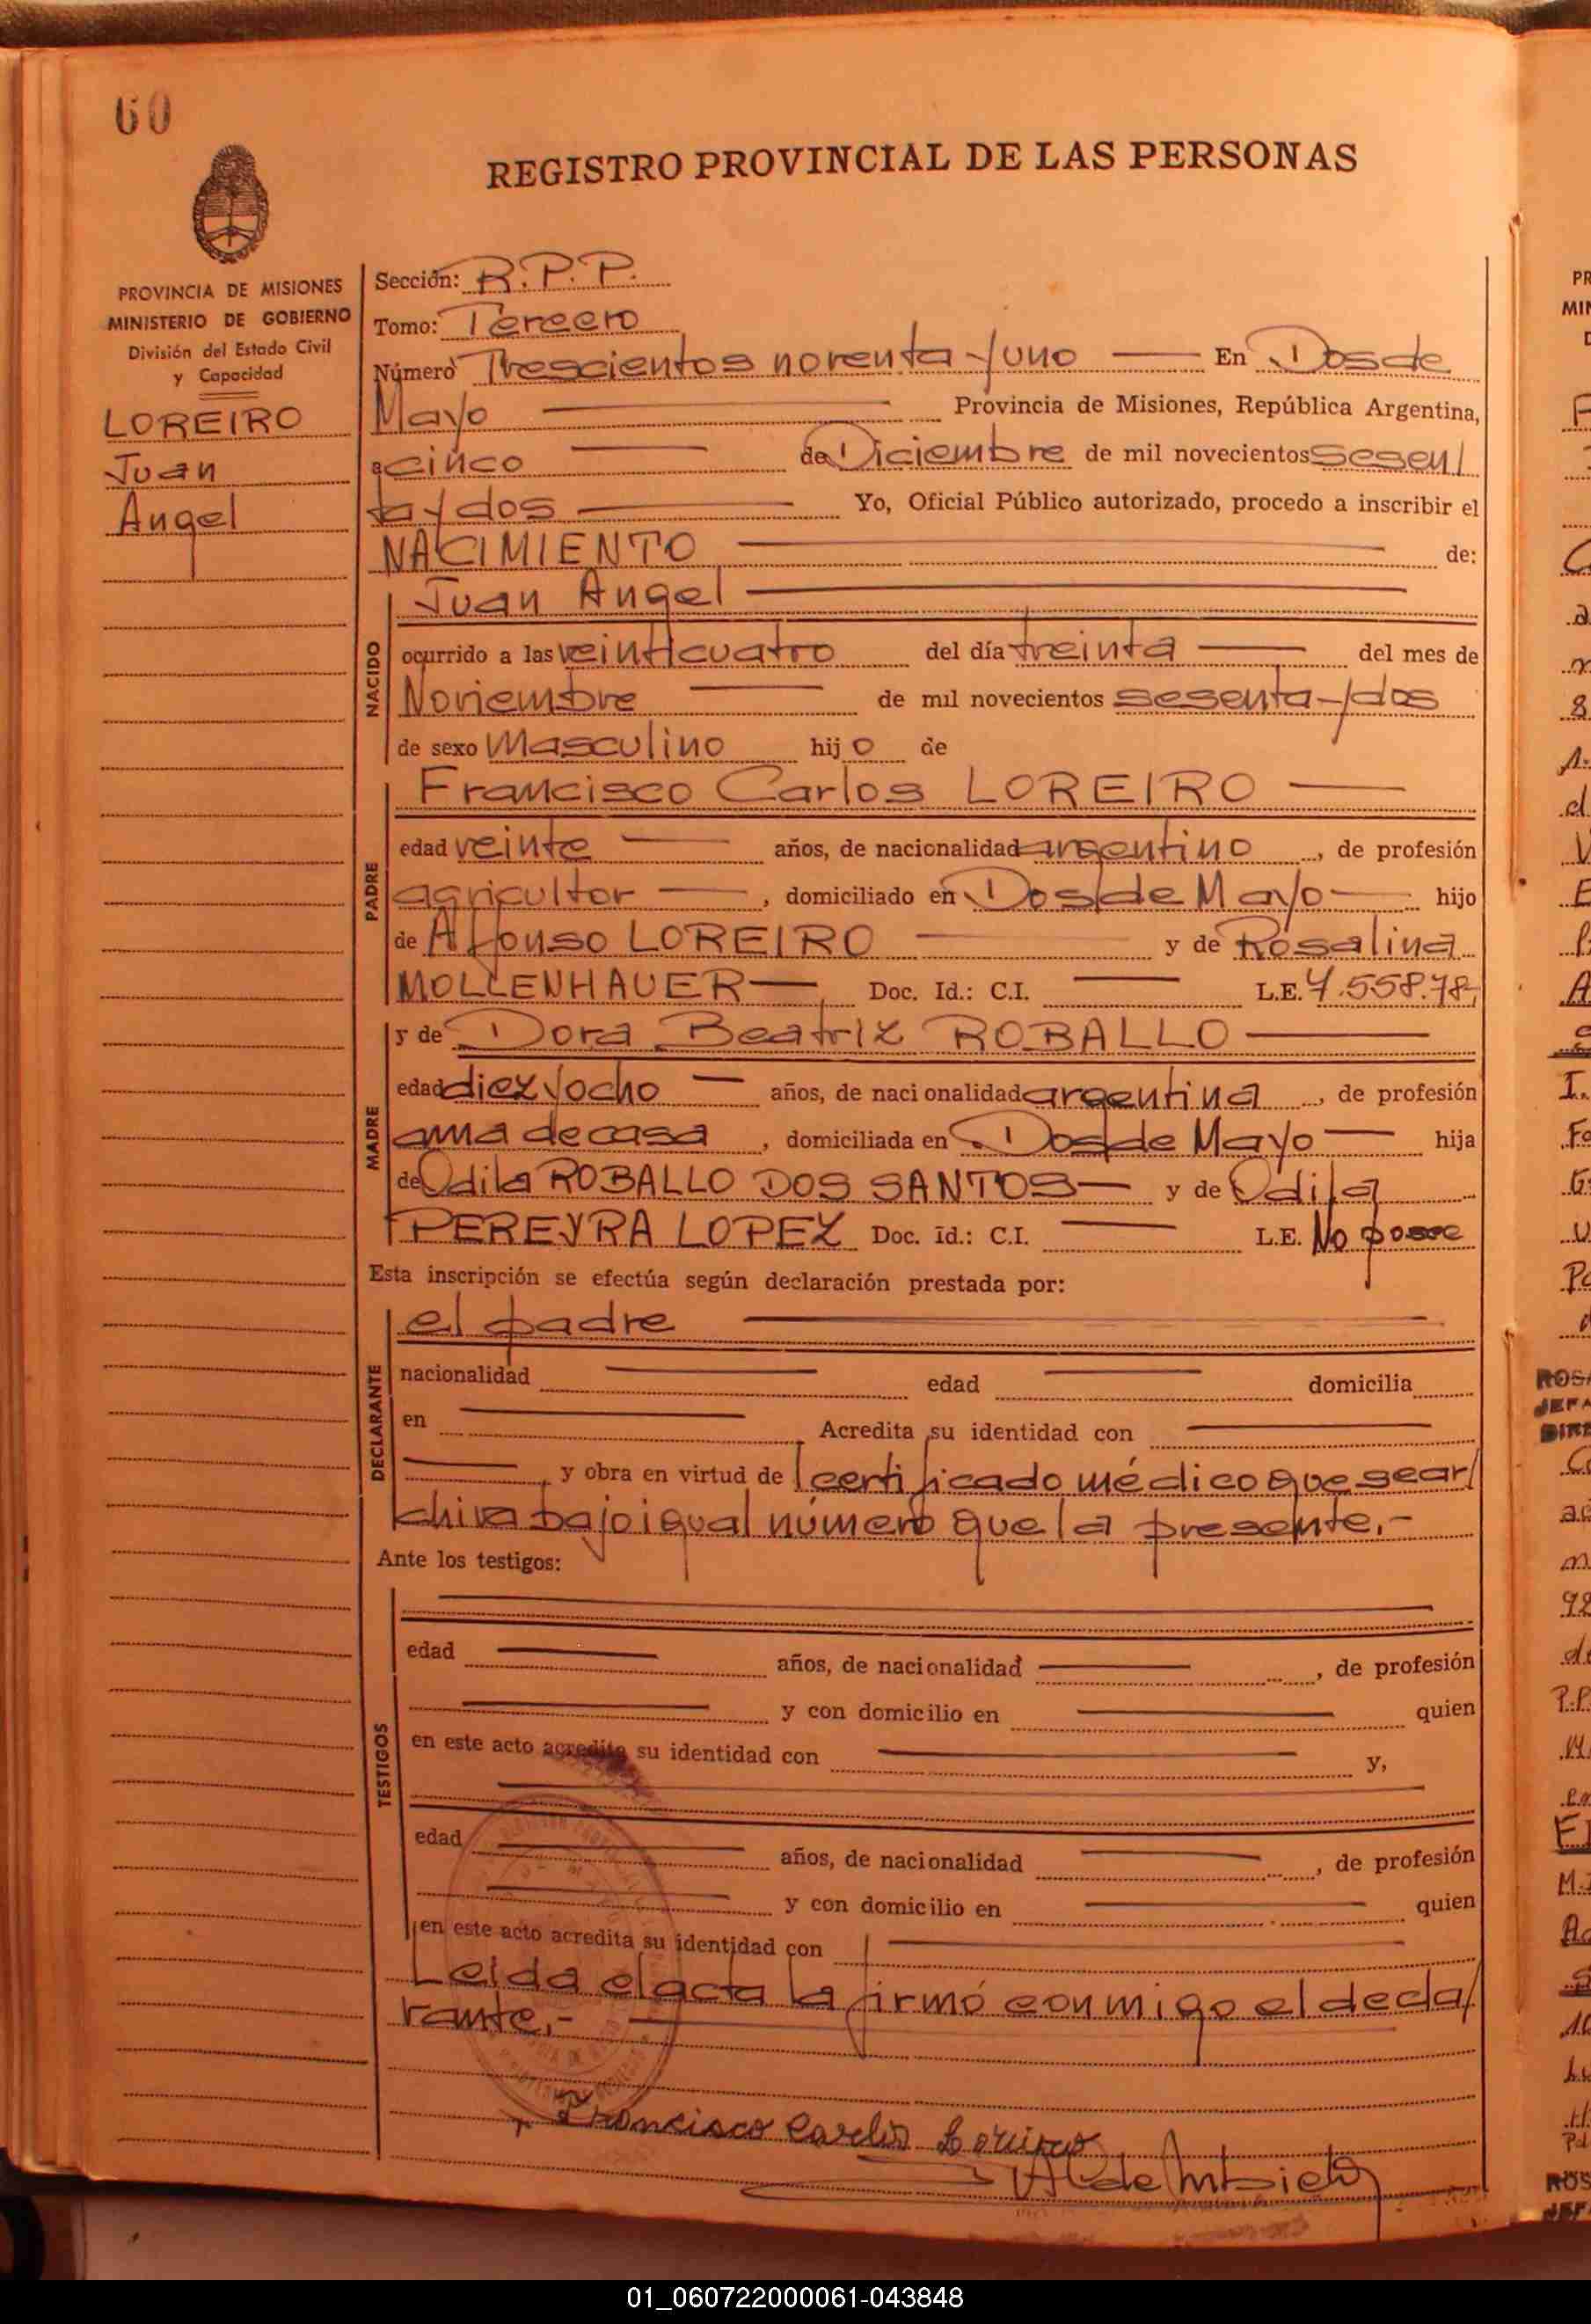 60
REGISTRO PROVINCIAL DE LAS PERSONAS
PROVINCIA DE MISIONES
MINISTERIO DE GOBIERNO
División del Estado Civil
y Capacidad
LOREIRO
Juan
Angel
Sección: R.P.P.
Tomo: Tercero
Número Trescientos noventa y uno — En Dos de
Mayo — Provincia de Misiones, República Argentina,
a cinco — de Diciembre de mil novecientos sesen/
ta y dos — Yo, Oficial Público autorizado, procedo a inscribir el
NACIMIENTO — de:
NACIDO
Juan Angel —
ocurrido a las veinticuatro del día treinta — del mes de
Noviembre — de mil novecientos sesenta y dos
de sexo Masculino hijo de
PADRE
Francisco Carlos LOREIRO —
edad veinte — años, de nacionalidad argentino, de profesión
agricultor —, domiciliado en Dos de Mayo — hijo
de Alfonso LOREIRO — y de Rosalina
MOLLENHAUER — Doc. Id.: C.I. — L.E. 7.558.78
MADRE
y de Dora Beatriz ROBALLO —
edad diez y ocho — años, de nacionalidad argentina, de profesión
ama de casa, domiciliada en Dos de Mayo — hija
de Odila ROBALLO DOS SANTOS — y de Odila
PEREYRA LOPEZ Doc. id.: C.I. — L.E. No posee
Esta inscripción se efectúa según declaración prestada por:
DECLARANTE
el padre —
nacionalidad — edad — domicilia
en — Acredita su identidad con —
— y obra en virtud de l certificado médico que se ar/
chiva bajo igual número que la presente.-
Ante los testigos:
TESTIGOS
edad — años, de nacionalidad —, de profesión
— y con domicilio en — quien
en este acto acredita su identidad con — y,
edad — años, de nacionalidad —, de profesión
— y con domicilio en — quien
en este acto acredita su identidad con —
Leida el acta la firmó conmigo el decla/
rante.- —
Francisco Carlos Loreiro
01_060722000061-043848